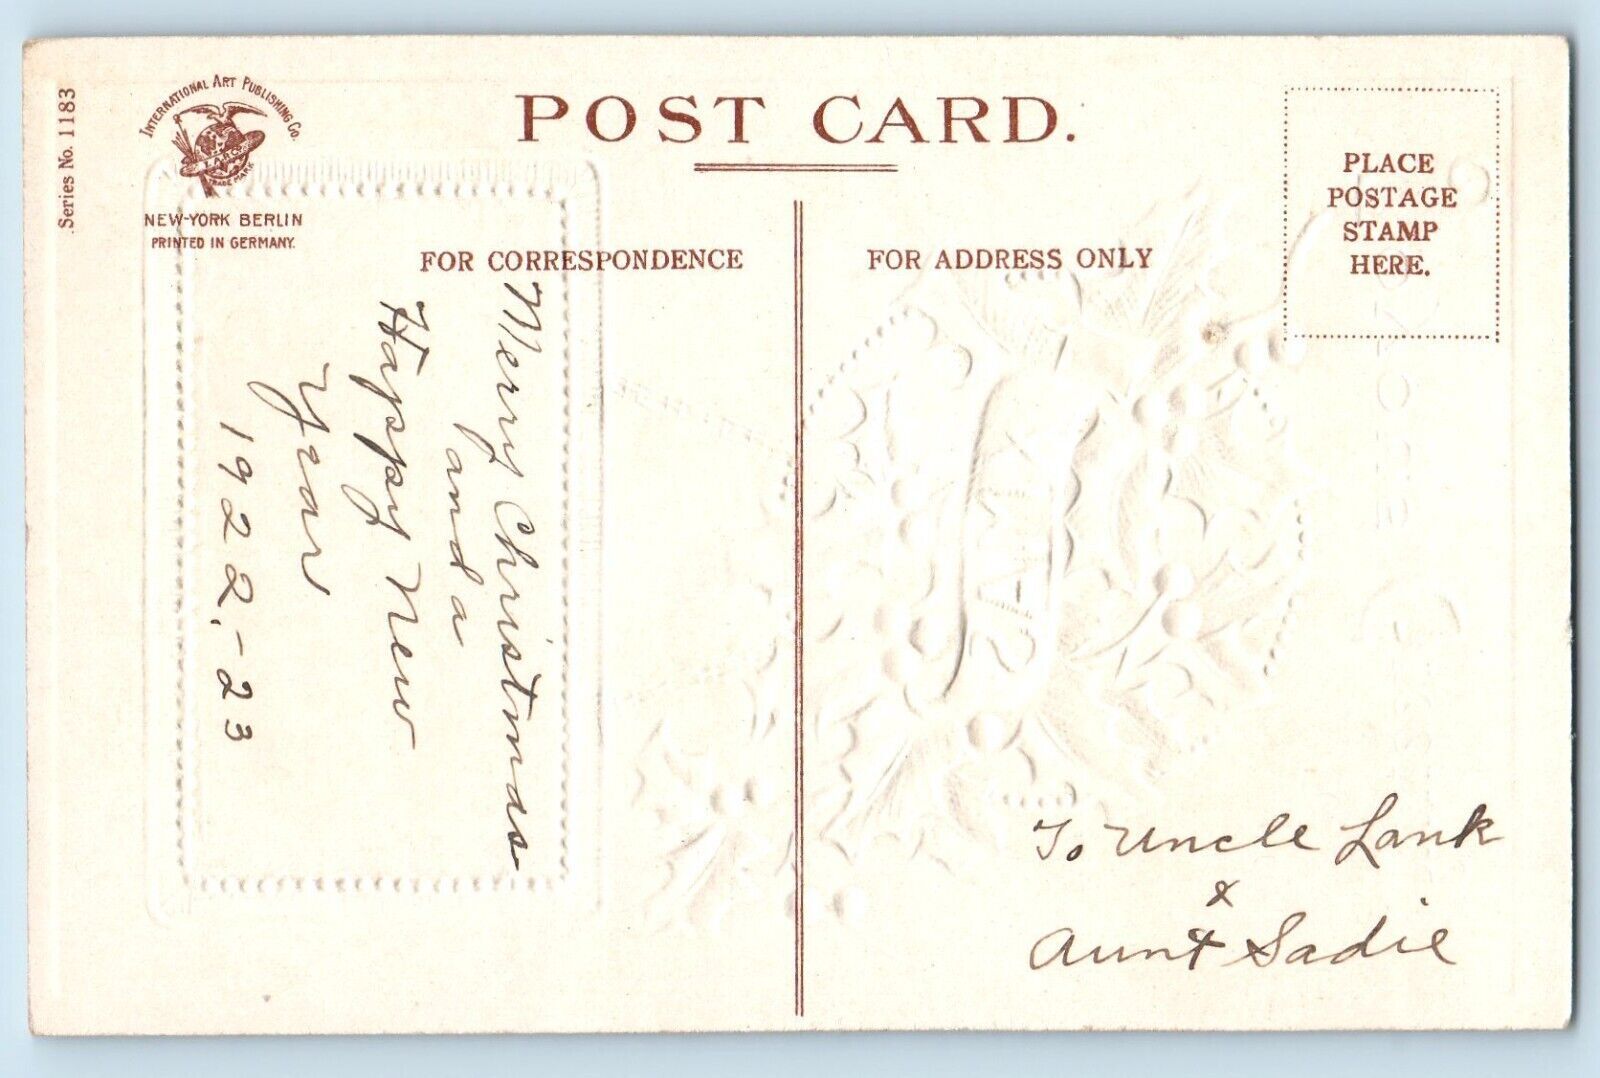 Series No. 1183
INTERNATIONAL ART PUBLISHING Co.
TRADE MARK
NEW-YORK BERLIN
PRINTED IN GERMANY.
POST CARD.
PLACE
POSTAGE
STAMP
HERE.
FOR CORRESPONDENCE
FOR ADDRESS ONLY
Merry Christmas
and a
Happy New
Year
1922,-23
To Uncle Lank
&
Aunt Sadie